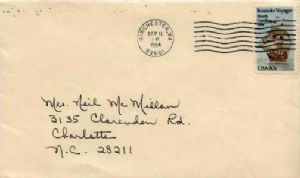 WINCHESTER, VA
SEP 11
1984
Roanoke Voyages
North
USA 20c
Mrs. Neil McMillan
3135 Clarendon Rd.
Charlotte
N.C. 28211